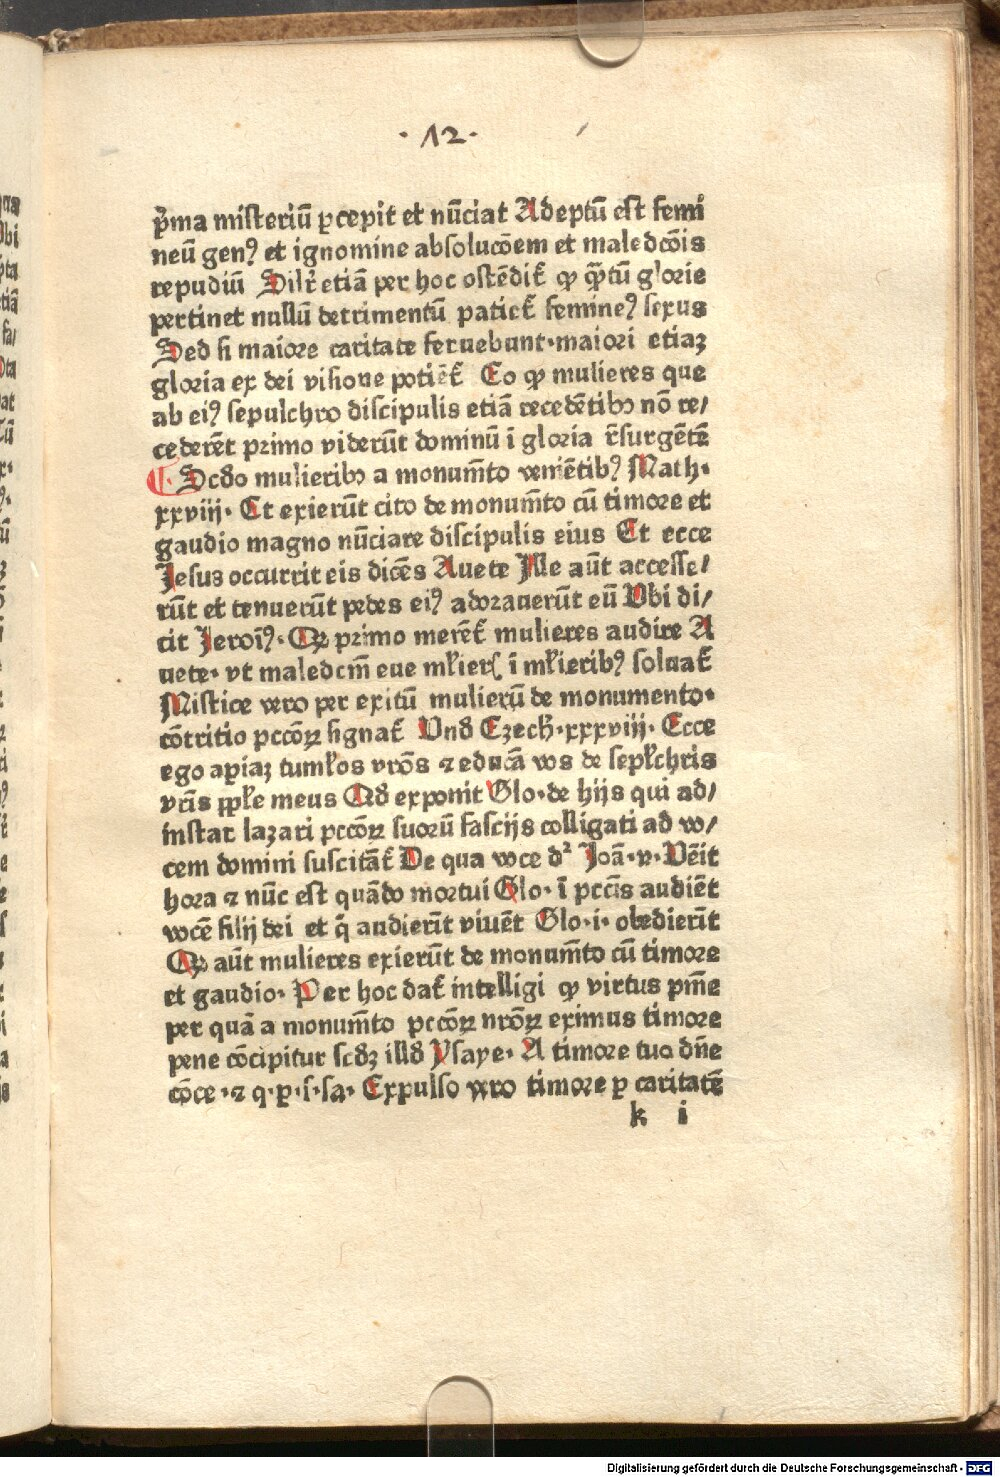 ·12·
p̄ma misteriū ꝑcepit et nūciat Adeptū est femi
neū genꝰ et ignomine absolucōem et maledcōis
repudiū Silr̄ etiā per hoc ostēdit̄ ꝙ qᷓtū glorie
pertinet nullū detrimentū patiet̄ femineꝰ sexus
Sed si maiore caritate feruebunt·maiori etiaꝫ
gloria ex dei visione potiēt̄ Eo ꝙ mulieres que
ab eiꝰ sepulchro discipulis etiā recedētibꝫ nō re/
cederēt primo viderūt dominū ī gloria r̄surgētē
Scd̄o mulieribꝫ a monum̄to veniētibꝰ Math·
xxviij· Et exierūt cito de monum̄to cū timore et
gaudio magno nūciare discipulis eius Et ecce
Jesus occurrit eis dicēs Auete Jlle aūt accesse/
rūt et tenuerūt pedes eiꝰ adorauerūt eū Vbi di/
cit Jeroīꝰ· Qꝛ primo merēt̄ mulieres audire A
uete· vt maledcm̄ eue mƚier ī mƚieribꝰ soluat̄
Mistice vero per exitū mulierū de monumento·
cōtritio pccōꝝ signat̄ Vnd̄ Ezech̄·xxxviij· Ecce
ego apiaꝫ tumƚos vrōs ⁊ educā vos de sepƚchris
vrīs ppƚe meus Qd̄ exponit Glo·de hijs qui ad/
instar lazari pccōꝝ suorū fascijs colligati ad vo/
cem domini suscitāt̄ De qua voce dꝛ Joā·v·Vēit
hora ⁊ nūc est quādo mortui Glo·ī pccīs audiēt
vocē filij dei et q̄ audierīt viuēt Glo·i·obedierīt
Qꝛ aūt mulieres exierūt de monum̄to cū timore
et gaudio· Per hoc dat̄ intelligi ꝙ virtus pnīe
per quā a monum̄to pccōꝝ nrōꝝ eximus timore
pene cōcipitur scd̄ꝫ illd̄ Ysaye· A timore tuo dn̄e
cōce·⁊ q·p·s·sa· Expulso vero timore ꝑ caritatē
k i
Digitalisierung gefördert durch die Deutsche Forschungsgemeinschaft - DFG